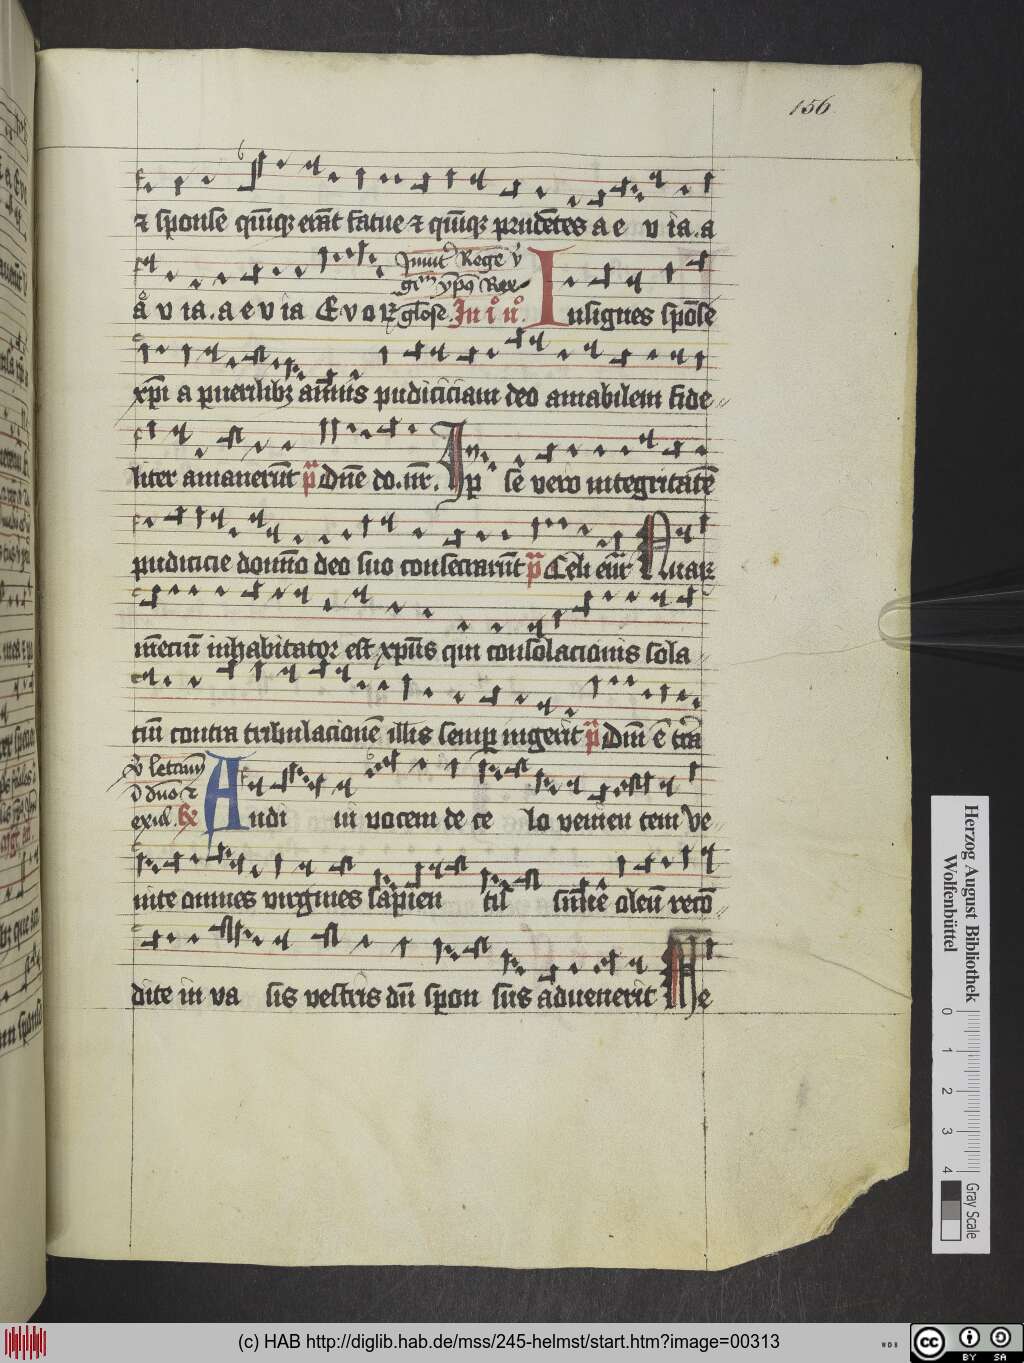 156
⁊ sponse quīqꝫ erāt fatue ⁊ quīqꝫ prudētes a e v ia. a
Inuit Regē v̄
gen xp̄s Rex
v ia. a e v ia E v o glose. In i n. Insignes spōse
xp̄i a puerilibꝫ annis pudiciciam deo amabilem fide
liter amauerūt p̄ Dn̄e do. nr̄. Ip sē vero integritatē
pudicicie domīo deo suo consecrarūt p̄ Celi enr̄ Quaꝝ
mēciū inhabitator est xp̄us qui consolacionis sola
ciū contra tribulacionē illis semꝑ ingerit p̄ Dn̄i ē tr̄a
duo ⁊
exiul. Audi ui vocem de ce lo venien tem Ve
nite omnes virgines sapien tis sumē oleū reco
dite in va sis vestris dū spon sus aduenerit Me
Herzog August Bibliothek
Wolfenbüttel
0 1 2 3 4
Gray Scale
(c) HAB http://diglib.hab.de/mss/245-helmst/start.htm?image=00313
WDB
cc BY SA